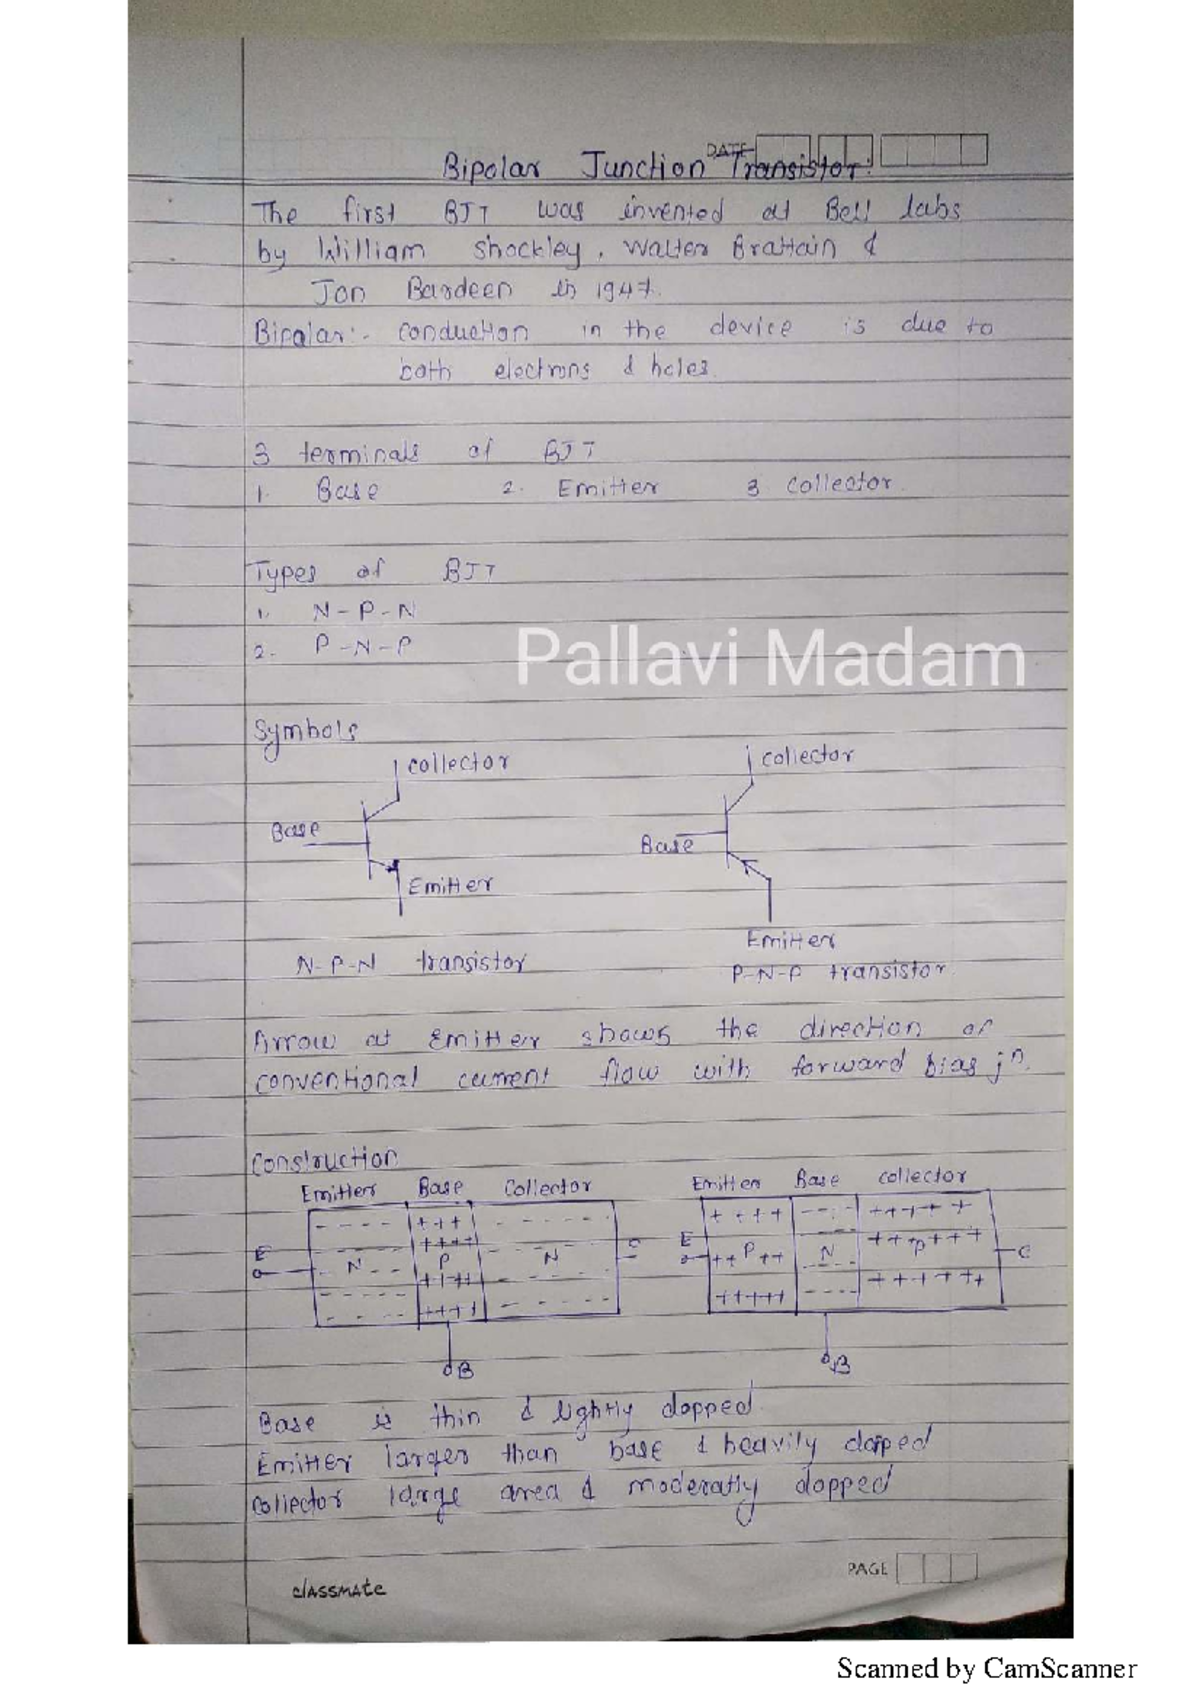 DATE
Bipolar Junction Transistor:
The first BJT was invented at Bell labs
by William Shockley, Walter Brattain &
Jon Bardeen in 1947.
Bipolar:- conduction in the device is due to
both electrons & holes.
3 terminals of BJT
1. Base 2. Emitter 3 collector.
Types of BJT
1. N-P-N
2. P-N-P
Pallavi Madam
Symbols
collector collector
Base Base
Emitter
Emitter
N-P-N transistor P-N-P transistor
Arrow at Emitter shows the direction of
conventional current flow with forward bias jn.
Construction
Emitter Base Collector Emitter Base collector
E N P N C E P N P C
B B
Base is thin & lightly dopped.
Emitter larger than base & heavily dopped
collector large area & moderatly dopped
PAGE
classmate
Scanned by CamScanner